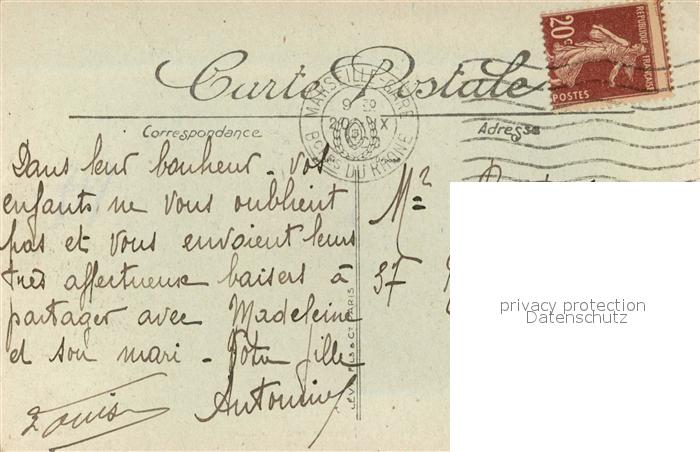 Carte Postale
20c
REPUBLIQUE FRANÇAISE
POSTES
MARSEILLE-GARE
9 30
BCHES DU RHONE
Correspondance
Adresse
Dans leur bonheur - vos
enfants ne vous oublient
pas et vous envoient leurs
très affectueux baisers à
partager avec Madeleine
et son mari - Votre fille
Louis
LÉVY FILS & Cie PARIS
Mr
37
privacy protection
Datenschutz